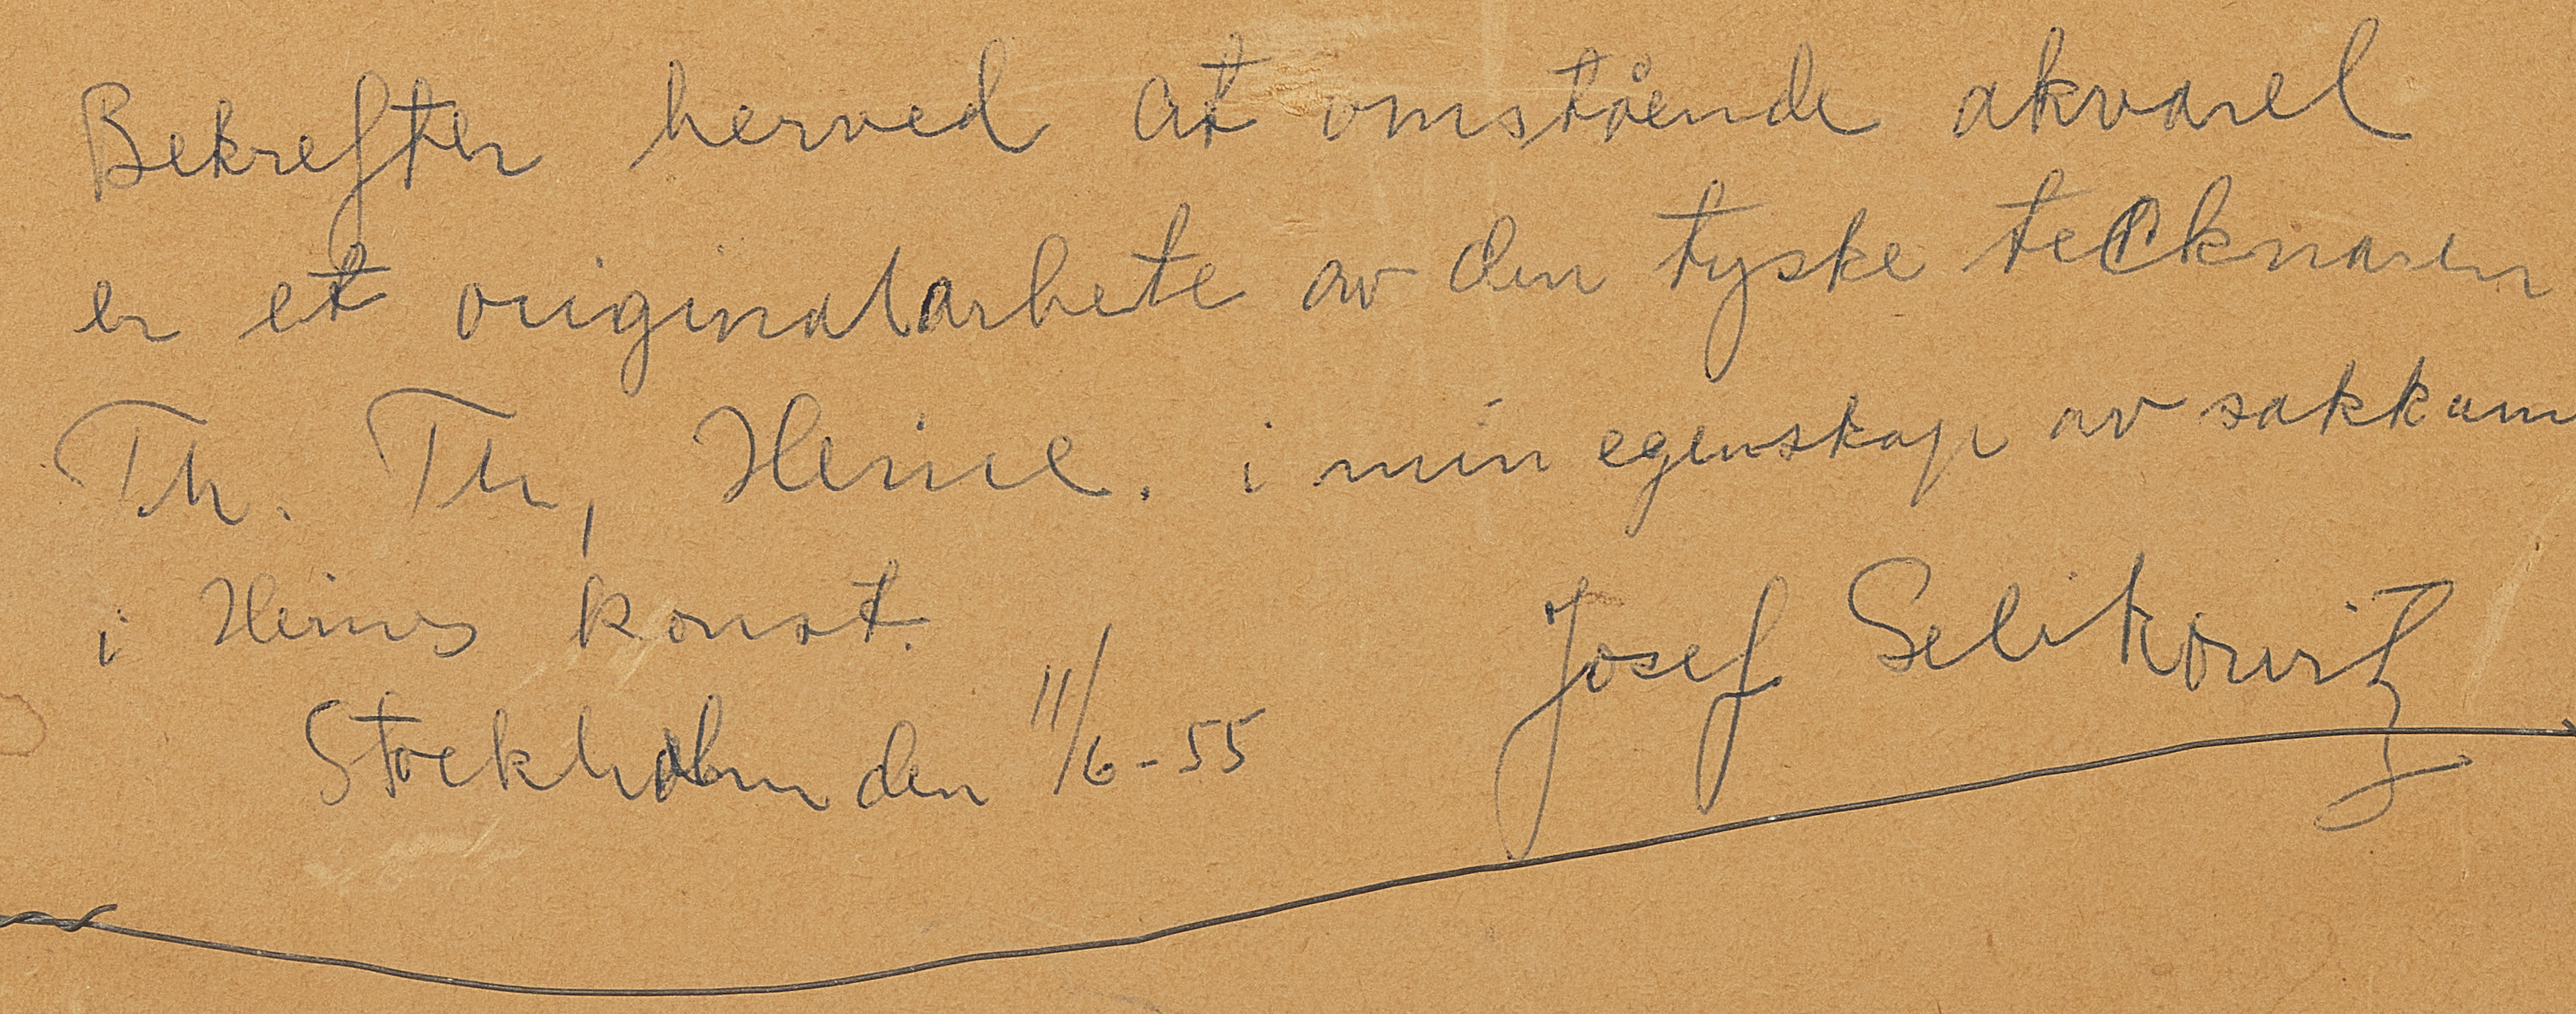 Bekrefter herved at omstående akvarel
er et originalarbete av den tyske tecknaren
Th. Th, Heine. i min egenskap av sakkunn
i Heines konst.
Josef Selikowitz
Stockholm den 11/6-55